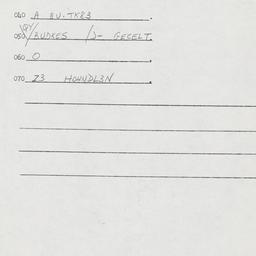 040 A 8U-TK83.
050 BUDKES /J- GECELT.
060 O.
070 23 HOWNDL3N.